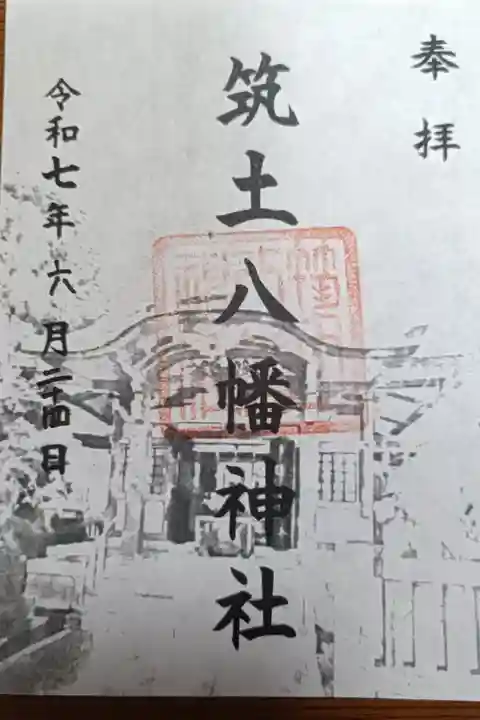 奉拝
筑土八幡神社
令和七年六月二十四日